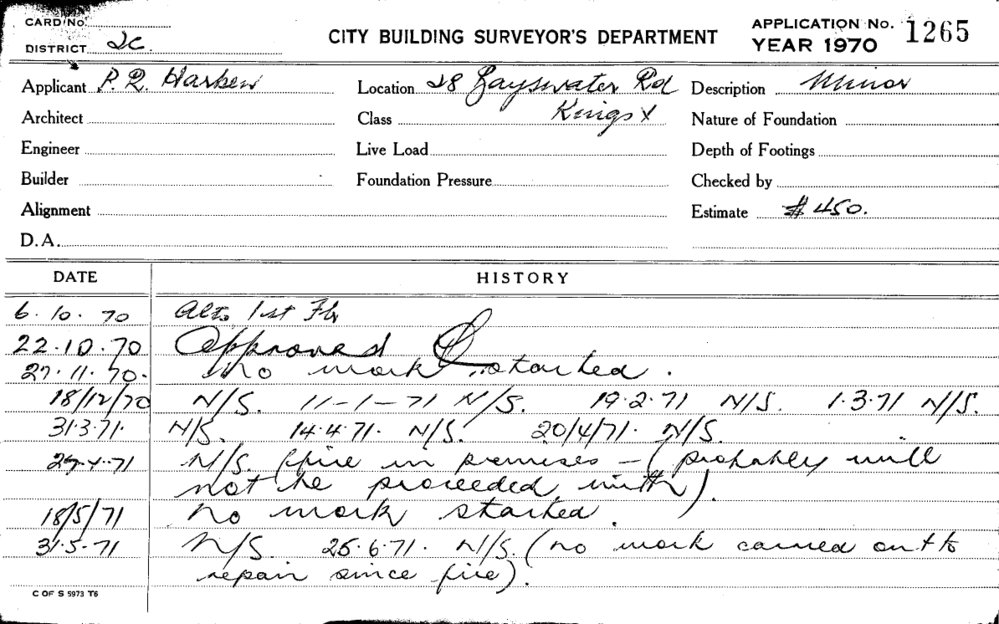 CARD No.
DISTRICT 2C.
CITY BUILDING SURVEYOR'S DEPARTMENT
APPLICATION No. 1265
YEAR 1970
Applicant P. R. Location 28 Bayswater Rd Description Minor
Architect Class Kings X Nature of Foundation
Engineer Live Load Depth of Footings
Builder Foundation Pressure Checked by
Alignment Estimate $ 450.
D.A.
DATE HISTORY
6. 10. 70 Alts 1st Flr
22.10.70 Approved
27. 11. 70. No work started.
18/12/70 N/S. 11-1-71 N/S. 19.2.71 N/S. 1.3.71 N/S.
31.3.71. N/S. 14.4.71. N/S. 20/4/71. N/S.
29.4.71 N/S. (fire in premises – (probably will
not be proceeded with).
18/5/71 No work started.
31.5.71 N/S. 25.6.71. N/S. (no work carried out to
repair since fire).
C OF S 5973 T6